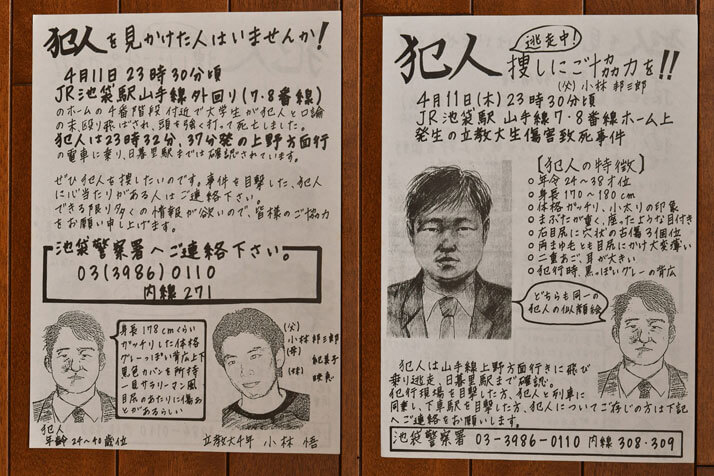 犯人を見かけた人はいませんか!
4月11日23時30分頃
JR池袋駅山手線外回り(7・8番線)
のホームの4番階段付近で大学生が犯人と口論
の末、殴り飛ばされ、頭を強く打って死亡しました。
犯人は23時32分、37分発の上野方面行
の電車に乗り、日暮里駅までは確認されています。
ぜひ犯人を捜したいのです。事件を目撃した、犯人
に心当たりがある人はご連絡下さい。
できる限り多くの情報が欲いので、皆様のご協力
をお願い申し上げます。
池袋警察署へご連絡下さい。
03(3986)0110
内線271
身長178cmくらい
ガッチリした体格
グレーっぽい背広上下
黒色カバンを所持
一見サラリーマン風
目尻のあたりに傷あ
とがあるらしい
犯人
年齢24〜40歳位
(父)
小林邦三郎
(母)
(妹)
立教大4年 小林悟
逃走中!
犯人捜しにご協力を!!
(父)小林邦三郎
4月11日(木)23時30分頃
JR池袋駅山手線7・8番線ホーム上
発生の立教大生傷害致死事件
[犯人の特徴]
○年令24〜38才位
○身長170〜180cm
○体格ガッチリ、小太りの印象
○まぶたが重く、座ったような目付き
○右目尻に穴状の古傷3個位
○両まゆ毛とも目尻にかけ大変薄い
○二重あご、耳が大きい
○犯行時、黒っぽいグレーの背広
どちらも同一の
犯人の似顔絵
犯人は山手線上野方面行きに飛び
乗り逃走、日暮里駅まで確認。
犯行現場を目撃した方、犯人と列車に
同乗し、下車駅を目撃した方、犯人についてご存じの方は下記
へご連絡をお願いします。
池袋警察署 03-3986-0110 内線308・309